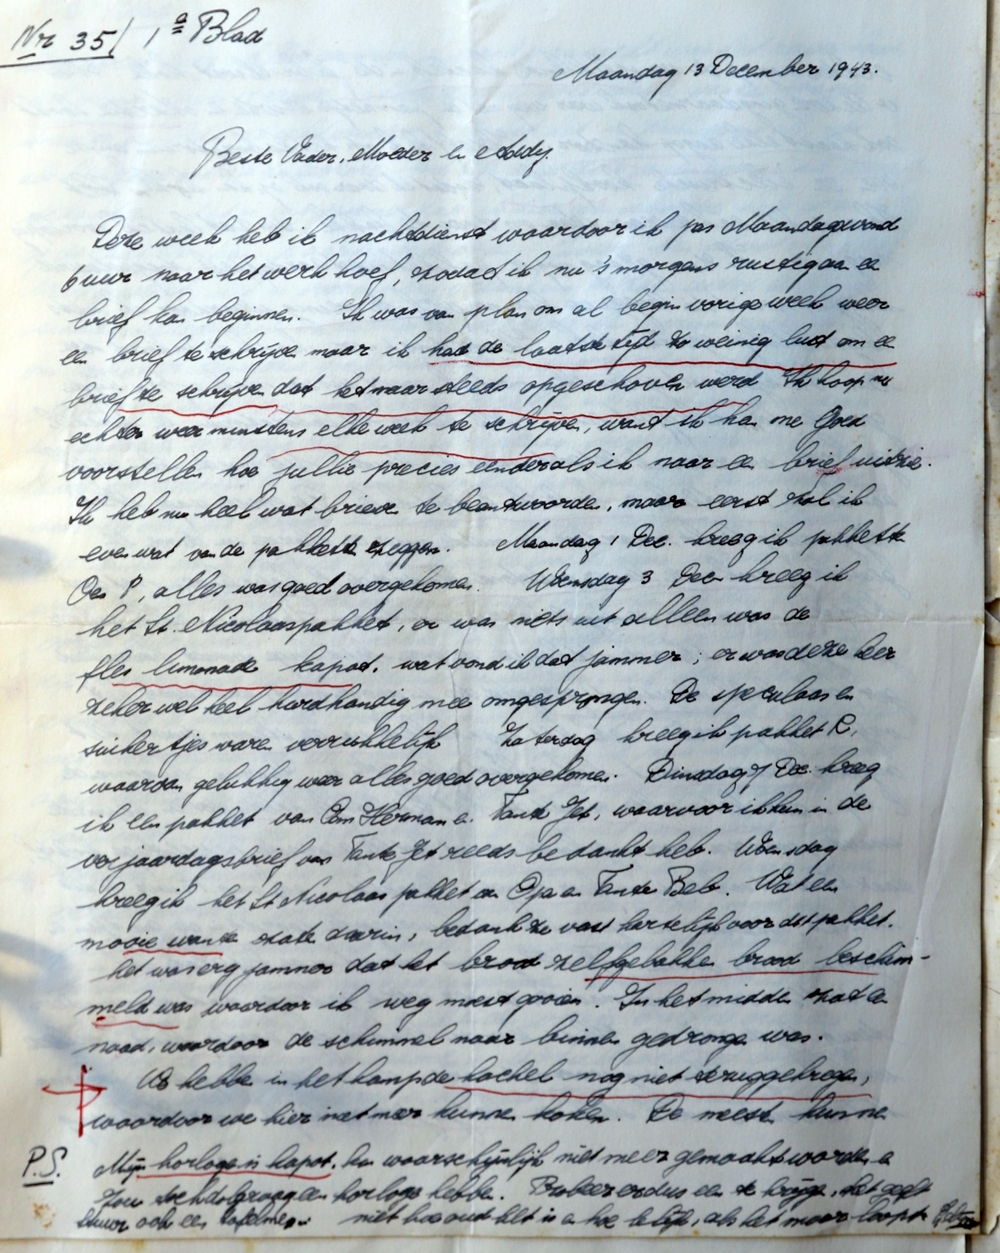 Nr. 35/ 1e Blad
Maandag 13 December 1943.
Beste Vader, Moeder en Addy
Deze week heb ik nachtdienst waardoor ik pas Maandagavond
6 uur naar het werk hoef, zodat ik nu 's morgens rustig aan een
brief kan beginnen. Ik was van plan om al begin vorige week weer
een brief te schrijven maar ik had de laatste tijd zo weinig lust om een
brief te schrijven dat het maar steeds opgeschoven werd. Ik hoop nu
echter weer minstens elke week te schrijven, want ik kan me goed
voorstellen hoe jullie precies eender als ik naar een brief uitzie.
Ik heb nu heel wat brieven te beantwoorden, maar eerst zal ik
even wat van de pakketten zeggen. Maandag 1 Dec. kreeg ik pakketten
O en P, alles was goed overgekomen. Woensdag 3 Dec kreeg ik
het St. Nicolaaspakket, er was niets uit alleen was de
fles limonade kapot. wat vond ik dat jammer; er was deze keer
zeker wel heel hardhandig mee omgesprongen. De speculaas en
suikertjes waren verrukkelijk Zaterdag kreeg ik pakket R,
waarvan gelukkig weer alles goed overgekomen. Dinsdag 7 Dec. kreeg
ik een pakket van Oom Herman en Tante Jet, waarvoor ik hun in de
verjaardagsbrief van Tante Jet reeds bedankt heb. Woensdag
kreeg ik het St Nicolaas pakket van Opa en Tante Beb. Wat een
mooie wanten zaten daarin, bedank ze vast hartelijk voor dit pakket.
het was erg jammer dat het brood zelfgebakken brood beschim-
meld was waardoor ik weg moest gooien. In het midden zat een
naad, waardoor de schimmel naar binnen gedrongen was.
We hebben in het kamp de kachel nog niet teruggekregen,
waardoor we hier niet meer kunnen koken. De meesten kunnen
P.S. Mijn horloge is kapot. kan waarschijnlijk niet meer gemaakt worden en
zou zo graag een horloge hebben. Probeer er dus een te krijgen, het geeft
Stuur ook een niet hoe oud het is en hoe lelijk, als het maar loopt.